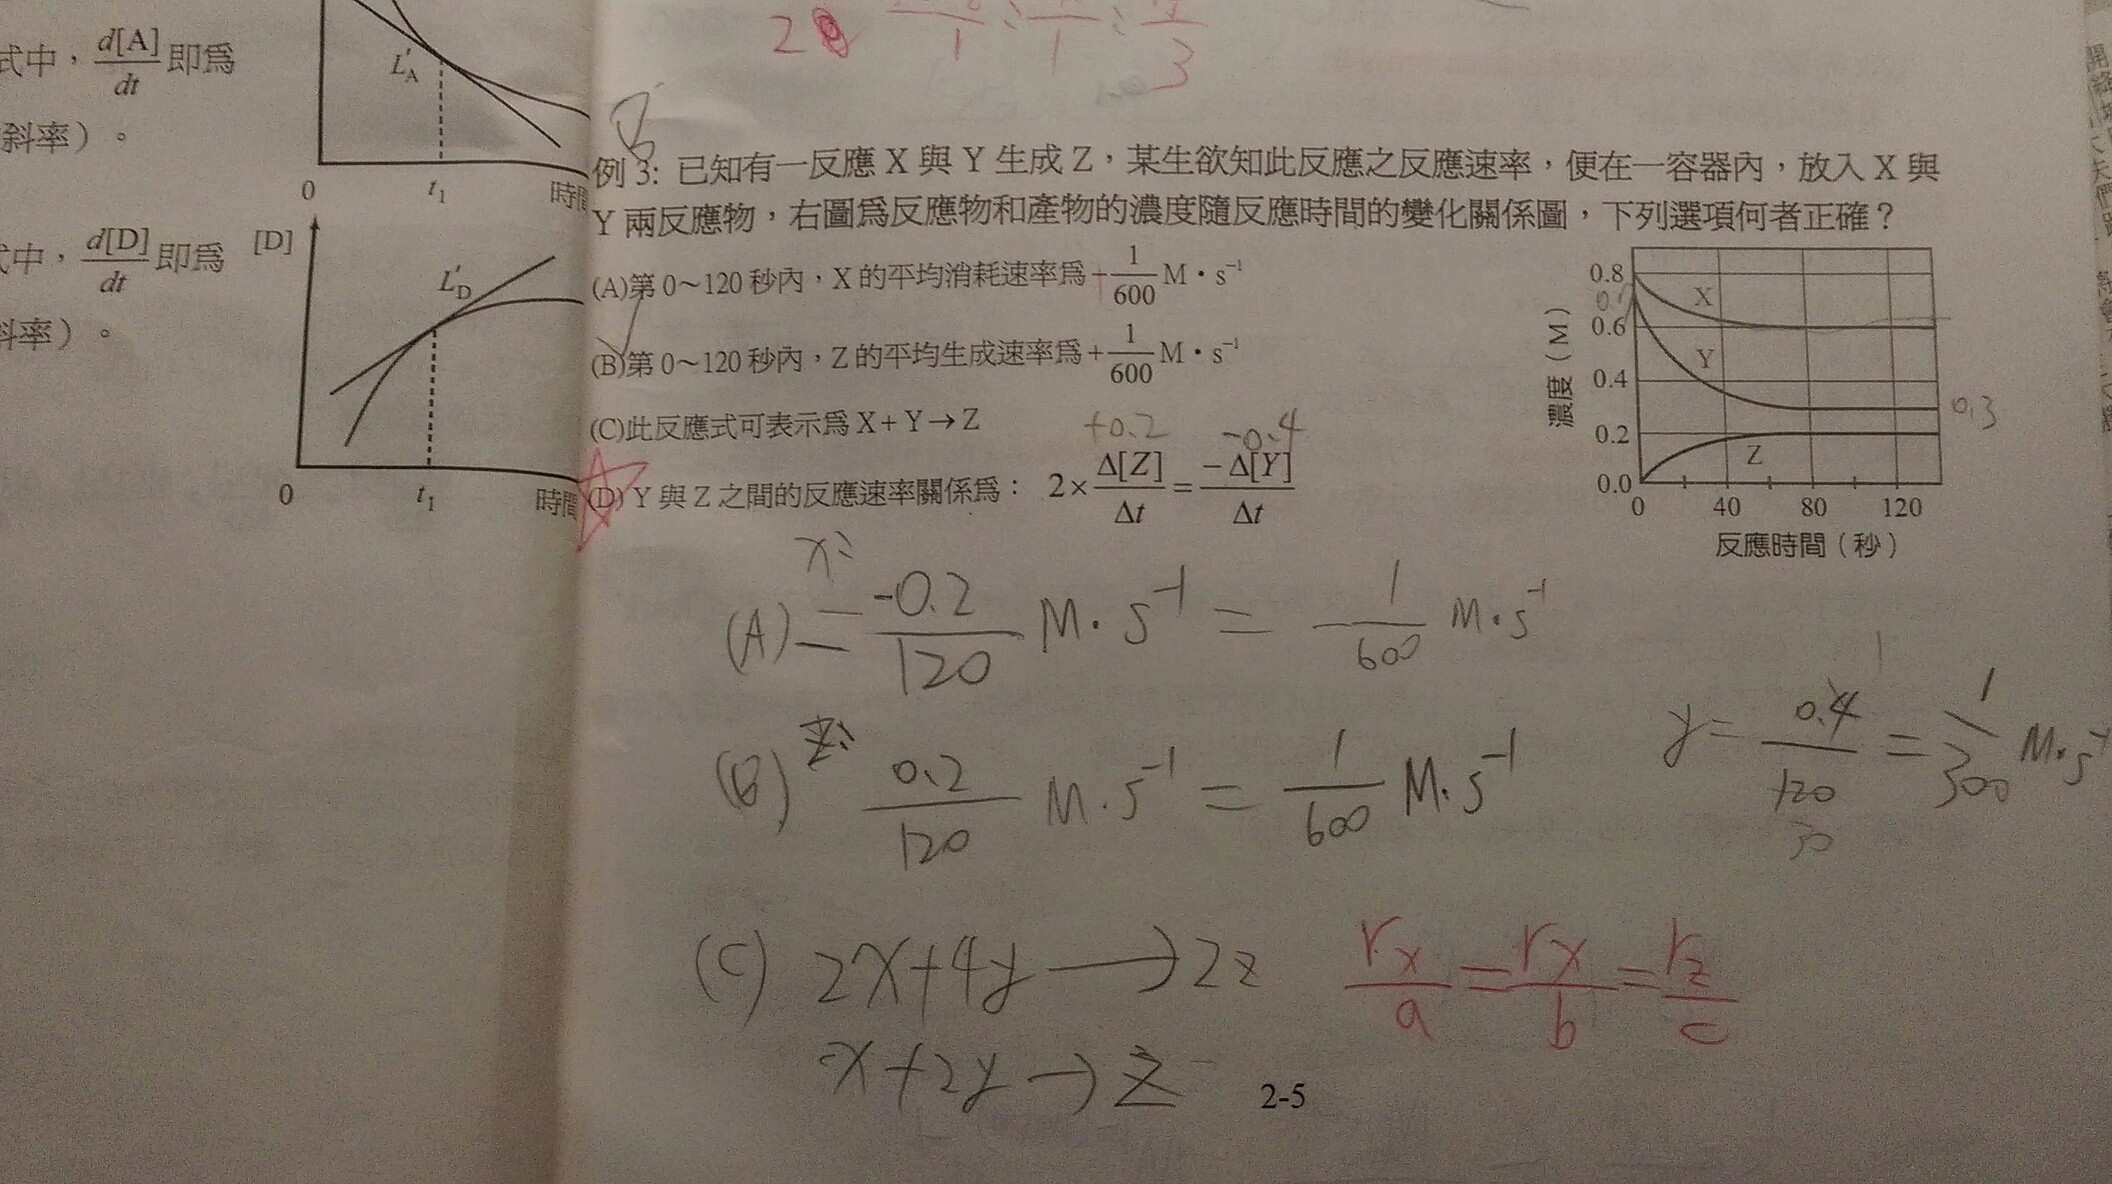 式中，d[A]/dt 即為
斜率）。
L'A
0 t1 時間
式中，d[D]/dt 即為
斜率）。
[D]
L'D
0 t1 時間
例 3: 已知有一反應 X 與 Y 生成 Z，某生欲知此反應之反應速率，便在一容器內，放入 X 與
Y 兩反應物，右圖為反應物和產物的濃度隨反應時間的變化關係圖，下列選項何者正確？
(A)第 0～120 秒內，X 的平均消耗速率為+1/600 M·s⁻¹
(B)第 0～120 秒內，Z 的平均生成速率為+1/600 M·s⁻¹
(C)此反應式可表示為 X + Y → Z
+0.2 -0.4
(D) Y 與 Z 之間的反應速率關係為： 2 × Δ[Z]/Δt = −Δ[Y]/Δt
濃度（M）
0.8
0.6
0.4
0.2
0.0
X
Y
Z
0.3
0 40 80 120
反應時間（秒）
x:
(A) = -0.2/120 M·s⁻¹ = -1/600 M·s⁻¹
(B) z: 0.2/120 M·s⁻¹ = 1/600 M·s⁻¹
y = 0.4/120 = 1/300 M·s⁻¹
(C) 2x+4y → 2z
rx/a = rx/b = rz/c
x+2y → z
2-5